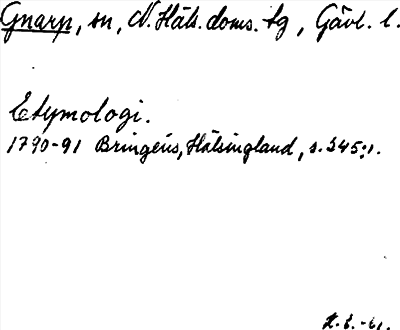 Gnarp, sn, N. Häls. doms. tg, Gävl. l.
Etymologi.
1790-91 Bringéus, Hälsingland, s. 345:1.
H. E. -61.